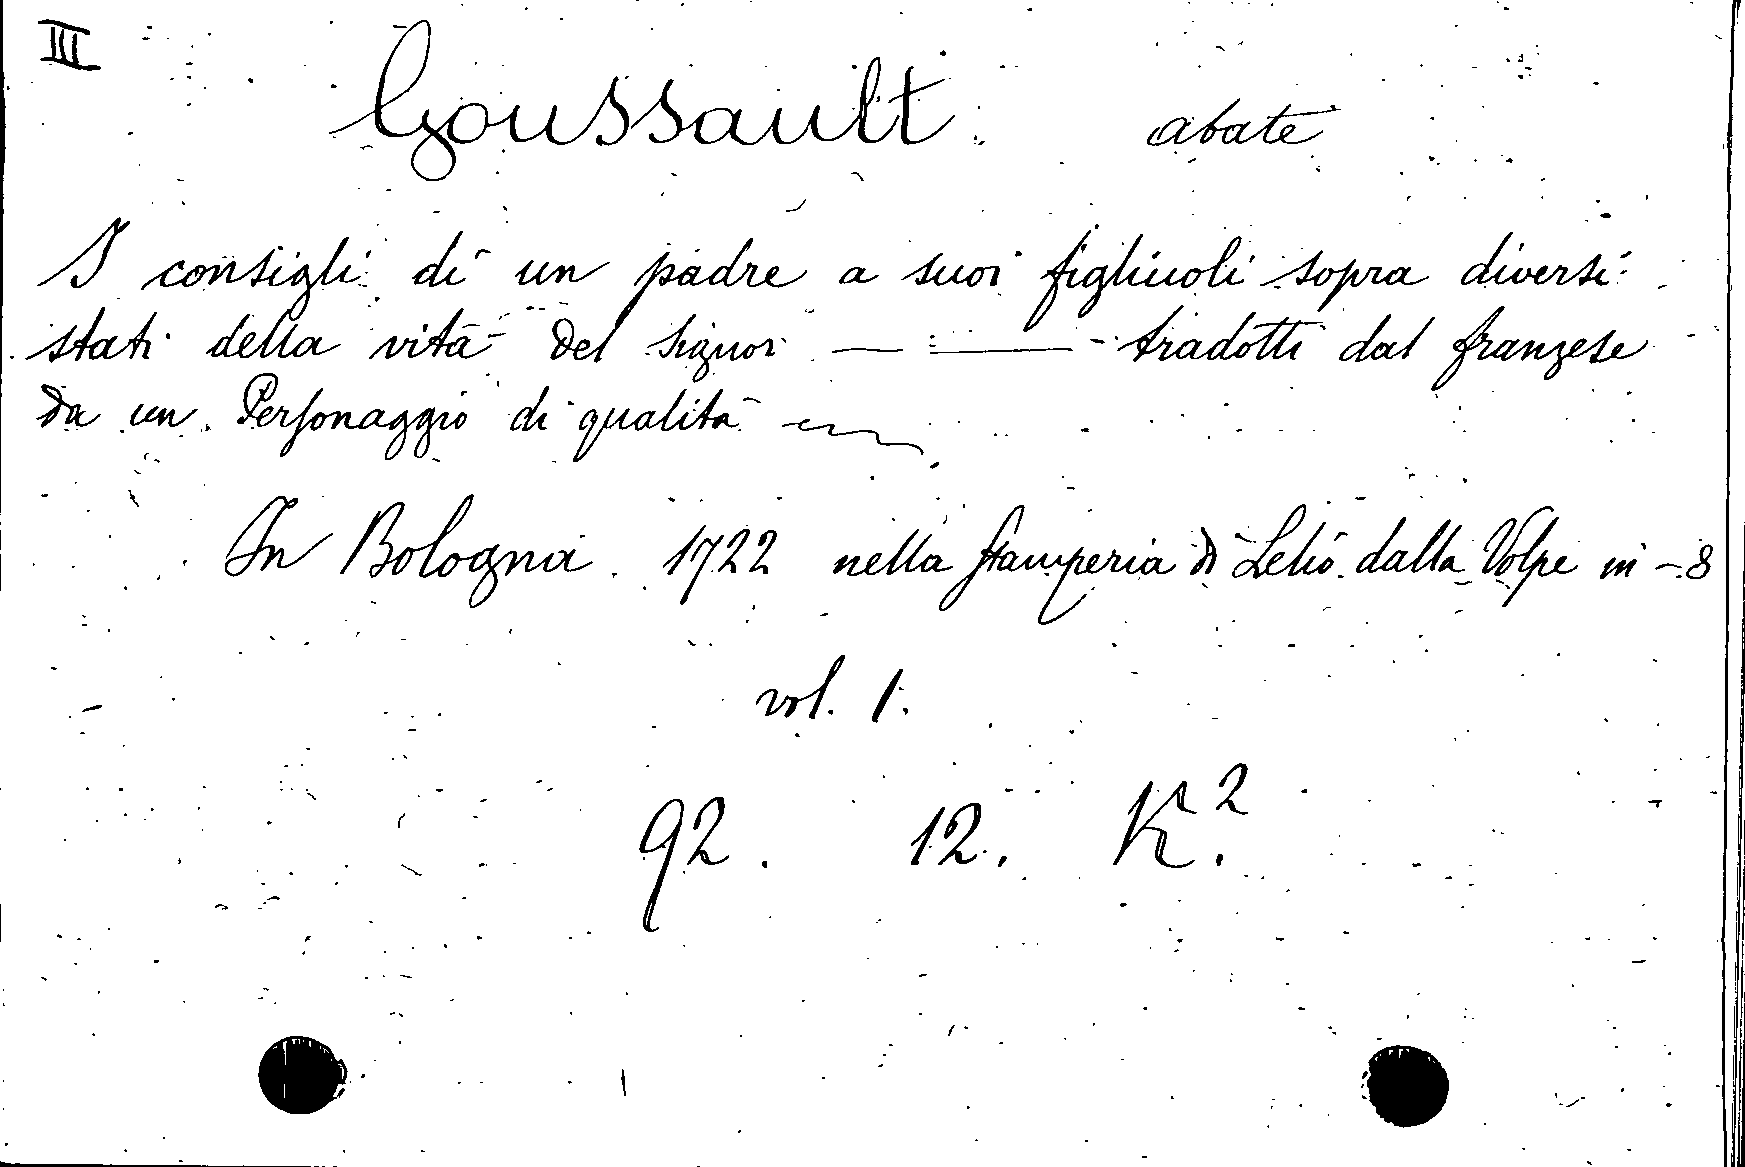 III
Goussault abate
I consigli di un padre a suoi figliuoli sopra diversi
stati della vita del signor — — tradotti dal franzese
da un Personaggio di qualità
In Bologna 1722 nella stamperia di Lelio dalla Volpe in-8
vol. 1.
92. 12. K².